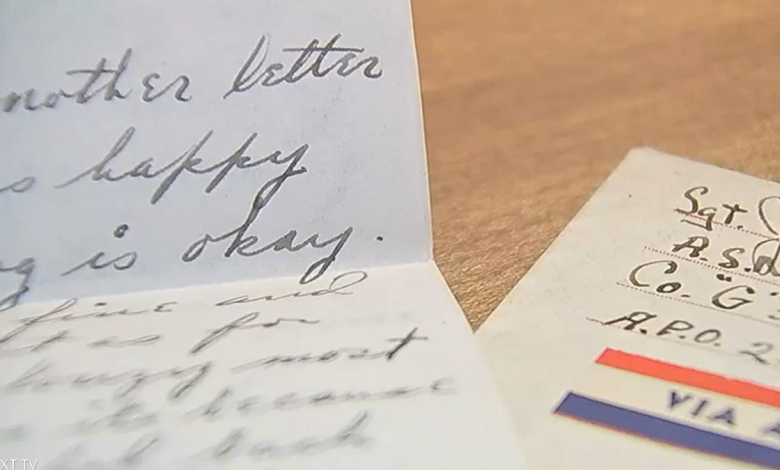 nother letter
s happy
g is okay.
fine and
t as for
hungry most
because
back
Sgt.
A.S.
Co. "G"
A.P.O. 2
VIA A
XT TV